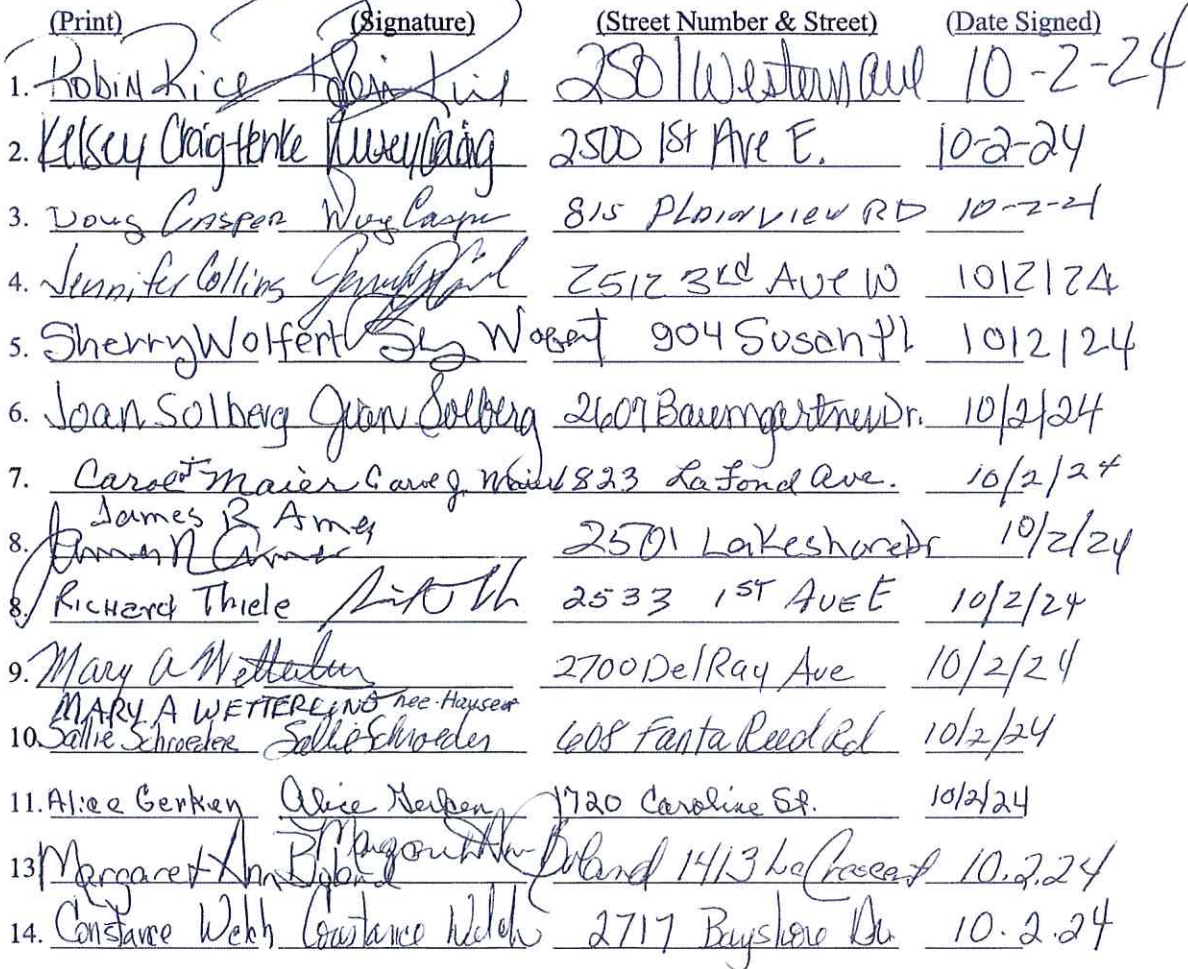 (Print) (Signature) (Street Number & Street) (Date Signed)
1. Robin Rice Robin Rice 2501 Western Ave 10-2-24
2. Kelsey Craig-Henke Kelsey Craig 2500 1st Ave E. 10-2-24
3. Doug Casper Doug Casper 815 PLainview RD 10-2-24
4. Jennifer Collins 2512 3rd Ave W 10/2/24
5. Sherry Wolfert 904 Susan Pl 10/2/24
6. Joan Solberg Joan Solberg 2607 Baumgartner Dr. 10/2/24
7. Carol J Maier Carol J. Maier 1823 La Fond Ave. 10/2/24
James R Ames
8. 2501 Lakeshore Dr 10/2/24
8. Richard Thiele 2533 1ST Ave E 10/2/24
9. Mary A Wetterling 2700 Del Ray Ave 10/2/24
MARY A WETTERLING nee-Hauser
10. Sallie Schroeder Sallie Schroeder 608 Fanta Reed Rd 10/2/24
11. Alice Gerken Alice Gerken 1720 Caroline St. 10/2/24
13 Margaret Ann Boland Margaret Ann Boland 1413 La Crescent 10.2.24
14. Constance Welch Constance Welch 2717 Bayshore Dr. 10.2.24